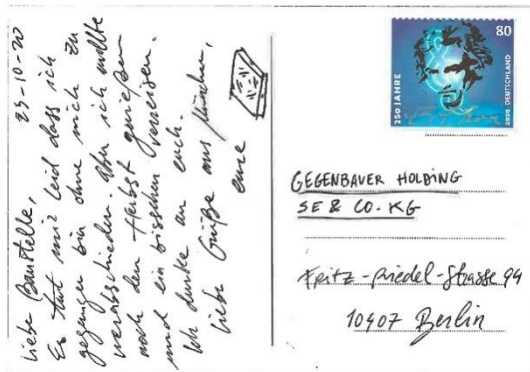 25-10-20
Liebe Baustelle,
Es tut mir leid dass ich
gegangen bin ohne mich zu
verabschieden. Aber ich wollte
noch den Herbst genießen
und ein bisschen verreisen.
Ich denke an euch.
Liebe Grüße aus München,
eure
80
250 JAHRE
2020 DEUTSCHLAND
GEGENBAUER HOLDING
SE & CO. KG
Fritz-Riedel-Strasse
10407 Berlin